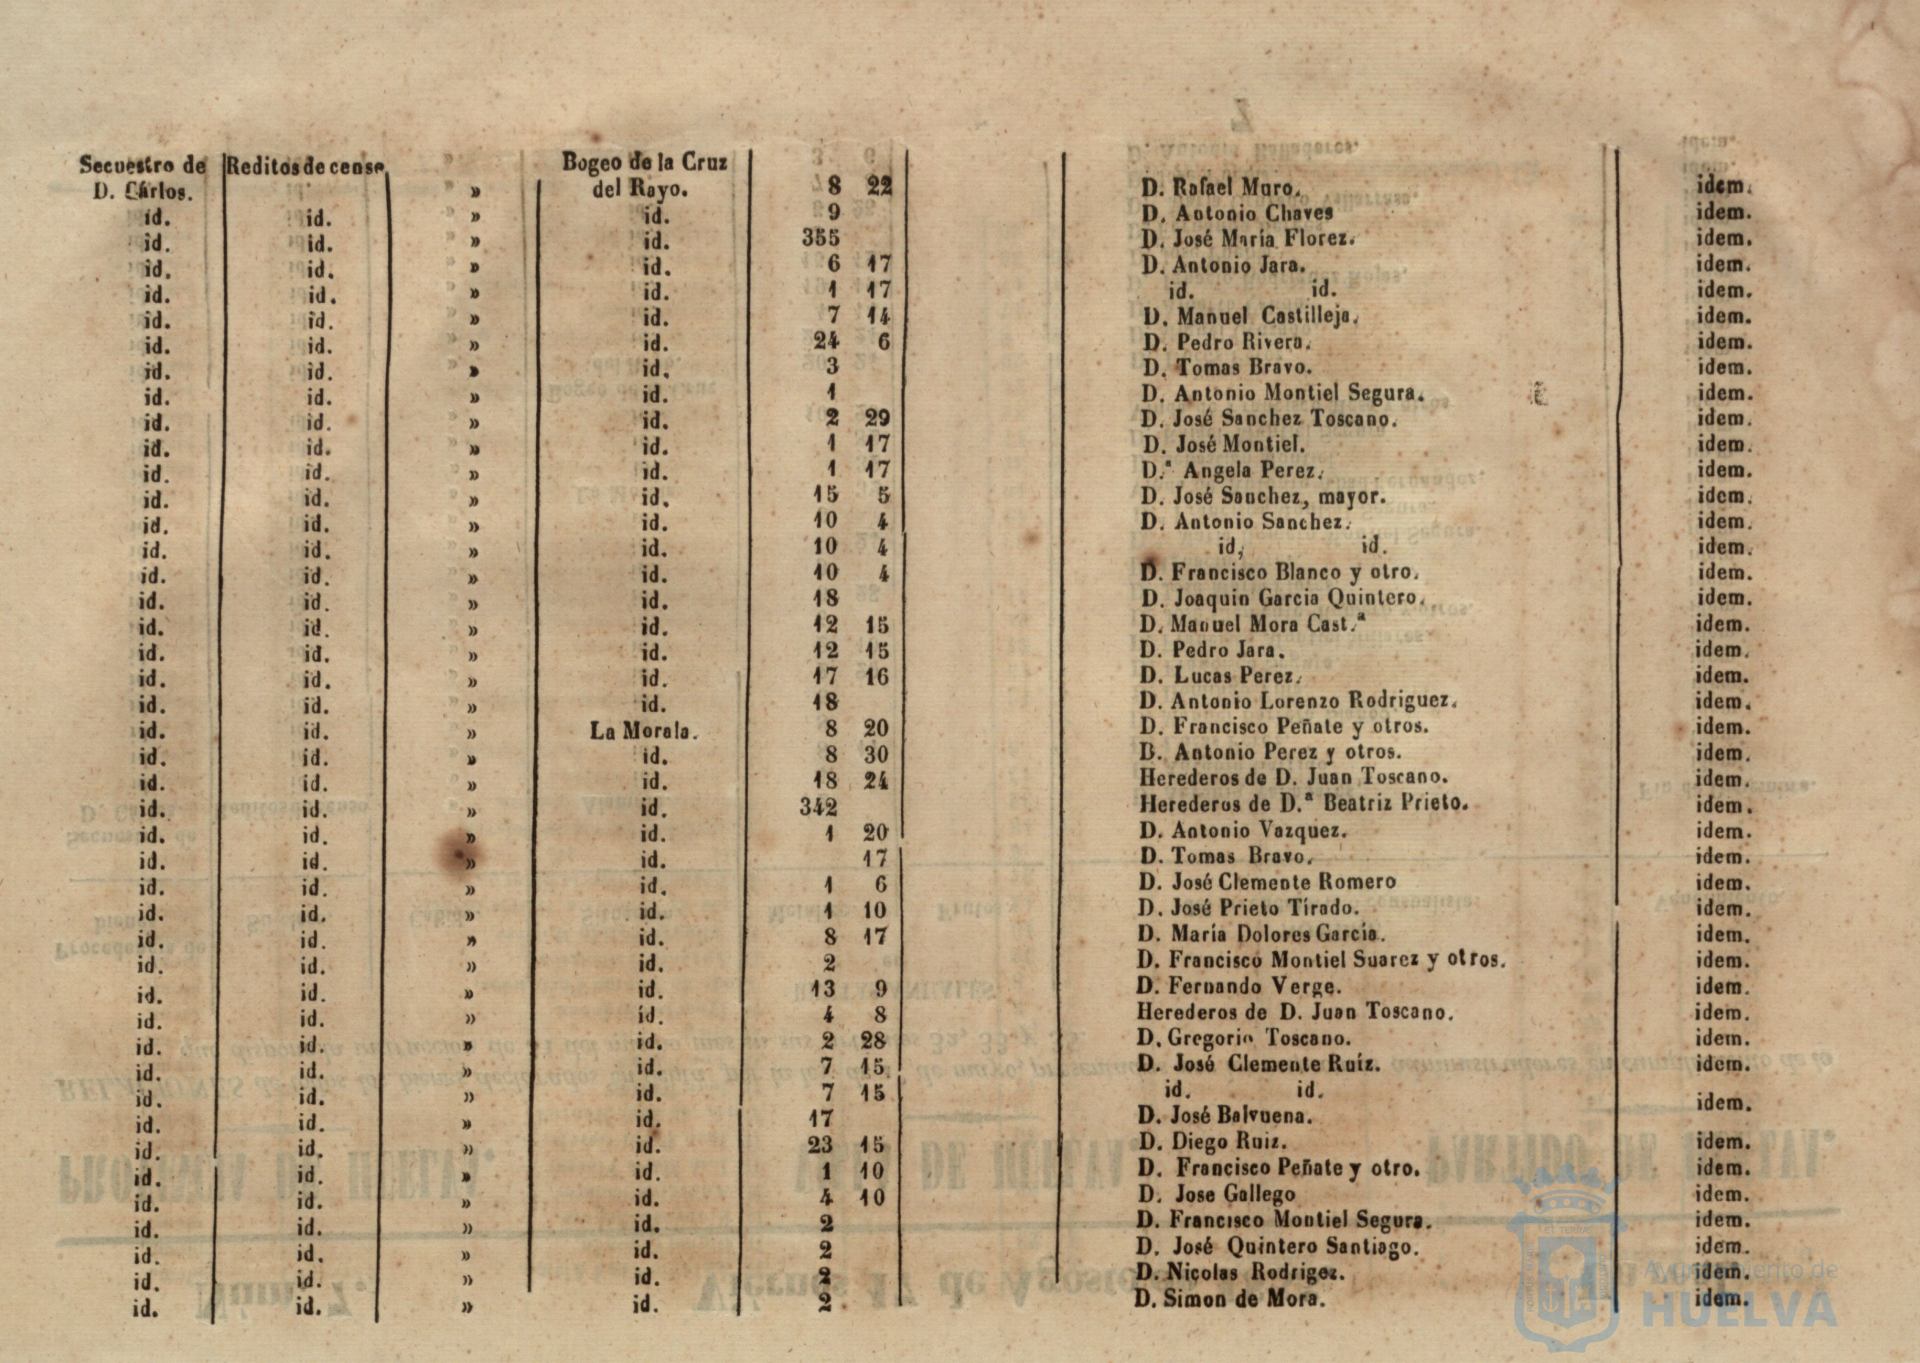 Secuestro de D. Cárlos. Reditos de censo » Bogeo de la Cruz del Rayo. 8 22 D. Rafael Muro. idem.
id. id. » id. 9 D. Antonio Chaves idem.
id. id. » id. 355 D. José María Florez. idem.
id. id. » id. 6 17 D. Antonio Jara. idem.
id. id. » id. 1 17 id. id. idem.
id. id. » id. 7 14 D. Manuel Castilleja. idem.
id. id. » id. 24 6 D. Pedro Rivera. idem.
id. id. » id. 3 D. Tomas Bravo. idem.
id. id. » id. 1 D. Antonio Montiel Segura. idem.
id. id. » id. 2 29 D. José Sanchez Toscano. idem.
id. id. » id. 1 17 D. José Montiel. idem.
id. id. » id. 1 17 D.ª Angela Perez. idem.
id. id. » id. 15 5 D. José Sanchez, mayor. idem.
id. id. » id. 10 4 D. Antonio Sanchez. idem.
id. id. » id. 10 4 id, id. idem.
id. id. » id. 10 4 D. Francisco Blanco y otro. idem.
id. id. » id. 18 D. Joaquin Garcia Quintero. idem.
id. id. » id. 12 15 D. Manuel Mora Cast.ª idem.
id. id. » id. 12 15 D. Pedro Jara. idem.
id. id. » id. 17 16 D. Lucas Perez. idem.
id. id. » id. 18 D. Antonio Lorenzo Rodriguez. idem.
id. id. » La Morala. 8 20 D. Francisco Peñate y otros. idem.
id. id. » id. 8 30 D. Antonio Perez y otros. idem.
id. id. » id. 18 24 Herederos de D. Juan Toscano. idem.
id. id. » id. 342 Herederos de D.ª Beatriz Prieto. idem.
id. id. » id. 1 20 D. Antonio Vazquez. idem.
id. id. » id. 17 D. Tomas Bravo. idem.
id. id. » id. 1 6 D. José Clemente Romero idem.
id. id. » id. 1 10 D. José Prieto Tirado. idem.
id. id. » id. 8 17 D. María Dolores García. idem.
id. id. » id. 2 D. Francisco Montiel Suarez y otros. idem.
id. id. » id. 13 9 D. Fernando Verge. idem.
id. id. » id. 4 8 Herederos de D. Juan Toscano. idem.
id. id. » id. 2 28 D. Gregorio Toscano. idem.
id. id. » id. 7 15 D. José Clemente Ruíz. idem.
id. id. » id. 7 15 id. id. idem.
id. id. » id. 17 D. José Balvuena.
id. id. » id. 23 15 D. Diego Ruiz. idem.
id. id. » id. 1 10 D. Francisco Peñate y otro. idem.
id. id. » id. 4 10 D. Jose Gallego idem.
id. id. » id. 2 D. Francisco Montiel Segura. idem.
id. id. » id. 2 D. José Quintero Santiago. idem.
id. id. » id. 2 D. Nicolas Rodrigez. idem.
id. id. » id. 2 D. Simon de Mora. idem.
Ayuntamiento de
HUELVA